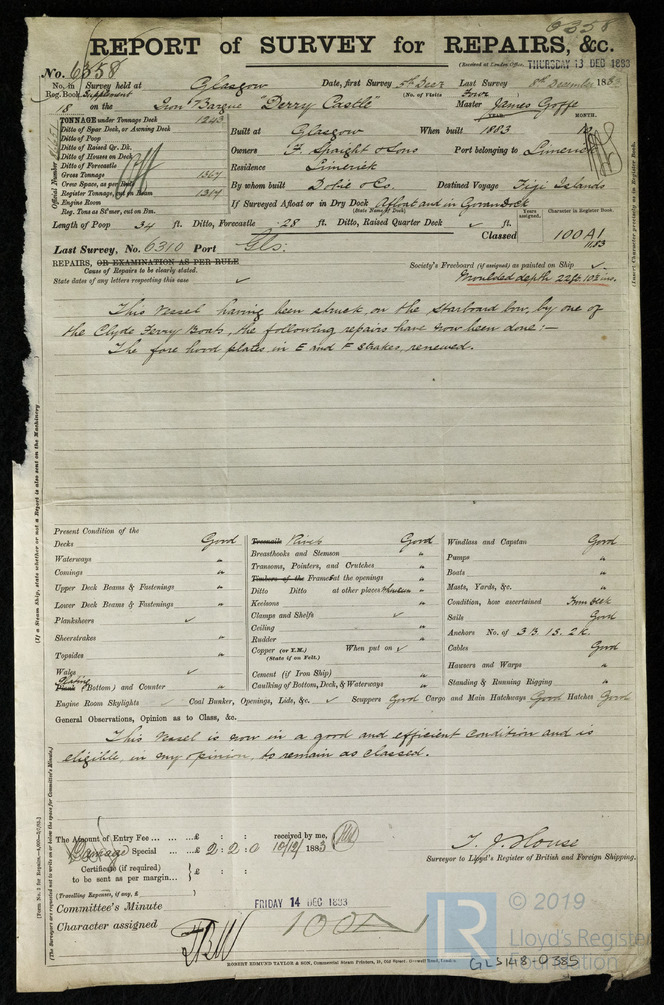 6358
REPORT of SURVEY for REPAIRS, &c.
(Received at London Office, THURSDAY 13 DEC 1883
No. 6358
No. in Reg. Book. Supplement 18
Survey held at Glasgow Date, first Survey 5th Decr Last Survey 8th December 1883
(No. of Visits Four)
on the Iron Barque "Derry Castle" Master James Goffe
TONNAGE under Tonnage Deck 1243
Ditto of Spar Deck, or Awning Deck
Ditto of Poop
Ditto of Raised Qr. Dk.
Ditto of Houses on Deck
Ditto of Forecastle
Gross Tonnage 1367
Crew Space, as per Rule
Register Tonnage, cut on Beam 1317
Engine Room
Reg. Tons as St'mer, cut on Bm.
Official Number
YEAR. MONTH.
Built at Glasgow When built 1883 10
Owners F. Spaight & Sons Port belonging to Limerick
Residence Limerick
By whom built Dobie & Co. Destined Voyage Figi Islands
If Surveyed Afloat or in Dry Dock Afloat and in Govan Dock
(State Name of Dock.)
Years assigned. Character in Register Book.
Length of Poop 34 ft. Ditto, Forecastle 28 ft. Ditto, Raised Quarter Deck ✓ ft.
Classed 100 A1
11.83
Last Survey, No. 6310 Port Gls:
REPAIRS, OR EXAMINATION AS PER RULE
Cause of Repairs to be clearly stated.
State dates of any letters respecting this case ✓
Society's Freeboard (if assigned) as painted on Ship ✓
Moulded depth 22ft. 10½ ins.
(Insert Character precisely as in Register Book.)
This Vessel having been struck, on the Starboard bow, by one of
the Clyde Ferry Boats, the following repairs have now been done:—
The fore hood plates in E and F Strakes, renewed.
(If a Steam Ship, state whether or not a Report is also sent on the Machinery
Present Condition of the
Decks Good
Waterways "
Comings "
Upper Deck Beams & Fastenings "
Lower Deck Beams & Fastenings "
Planksheers ✓
Sheerstrakes "
Topsides "
Wales ✓
Plating
Plank (Bottom) and Counter "
Treenails Rivets Good
Breasthooks and Stemson "
Transoms, Pointers, and Crutches "
Timbers of the Frames at the openings "
Ditto Ditto at other places "
Keelsons "
Clamps and Shelfs ✓
Ceiling "
Rudder "
Copper (or Y.M.) When put on ✓
(State if on Felt.)
Cement (if Iron Ship) "
Caulking of Bottom, Deck, & Waterways "
Windlass and Capstan Good
Pumps "
Boats "
Masts, Yards, &c. "
Condition, how ascertained From deck
Sails Good
Anchors No. of 3 B. 1 S. 2 K.
Cables Good
Hawsers and Warps "
Standing & Running Rigging "
Engine Room Skylights ✓ Coal Bunker, Openings, Lids, &c. ✓ Scuppers Good Cargo and Main Hatchways Good Hatches Good
General Observations, Opinion as to Class, &c.
This Vessel is now in a good and efficient condition and is
eligible, in my opinion, to remain as classed.
[Form No. 3 for Repairs.
(The Surveyors are requested not to write on or below the space for Committee's Minute.)
The Amount of Entry Fee ... ... £ : : received by me,
Damage Special ... £ 2 : 2 : 0 10/12/ 1883
Certificate (if required) £ : :
to be sent as per margin...
(Travelling Expenses, if any, £ )
T. J. House
Surveyor to Lloyd's Register of British and Foreign Shipping.
Committee's Minute FRIDAY 14 DEC 1883
Character assigned 100A
ROBERT EDMUND TAYLOR & SON, Commercial Steam Printers, 19, Old Street, Goswell Road, London.
LR
© 2019
Lloyd's Register
Foundation
GLS148-0385